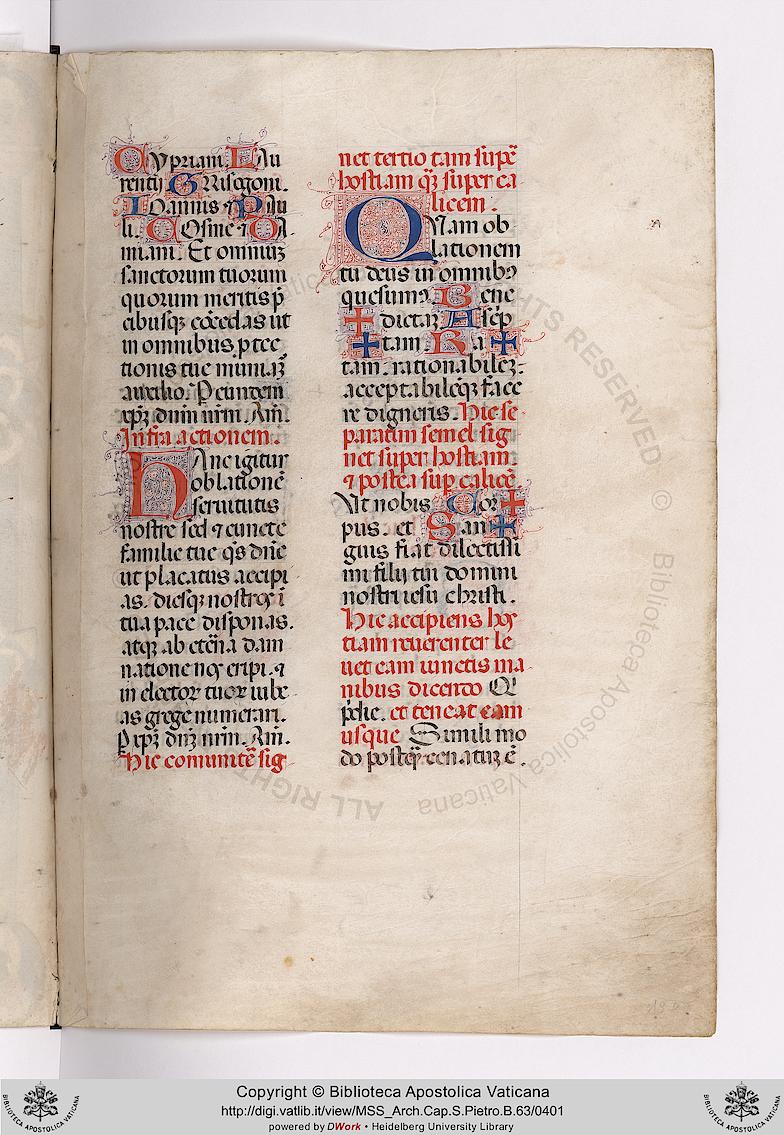 Cypriani. Lau
rentij. Grisogoni.
Ioannis ⁊ Pau
li. Cosme ⁊ Da
miani. Et omniuꝫ
sanctorum tuorum
quorum meritis p̄
cibusqꝫ cōcedas ut
in omnibus. ptec
tionis tue muniaꝫ
auxilio. P eundem
xp̄ꝫ dnm̄ nrm̄. Am̄.
Infra actionem.
Hanc igitur
oblationē
seruitutis
nostre sed ⁊ cuncte
familie tue qs̄ dnē
ut placatus accipi
as. diesqꝫ nostros ī
tua pace disponas.
atqꝫ ab etēna dam
natione nos eripi. ⁊
in electoꝝ tuoꝝ iube
as grege numerari.
P xp̄ꝫ dnꝫ nrm̄. Am̄.
Hic comunitē sig
net tertio tam supē
hostiam qꝫ super ca
licem.
Quam ob
lationem
tu deus in omnibꝰ
quesumꝰ. Bene
✠ dictaꝫ Ascp̄
✠ tam Ra ✠
tam. rationabileꝫ.
acceptabileqꝫ face
re digneris. Hic se
paratim semel sig
net super hostiam
⁊ postea sup calicē
Ut nobis Cor ✠
pus. et San ✠
guis fiat dilectissi
mi filij tui domini
nostri iesu christi.
Hic accipiens hos
tiam reuerenter le
uet eam iunctis ma
nibus dicendo Q̄
p̄die. et teneat eam
usque Simili mo
do postqꝫ cenatuꝫ ē.
ALL RIGHTS RESERVED © Biblioteca Apostolica Vaticana
Copyright © Biblioteca Apostolica Vaticana
http://digi.vatlib.it/view/MSS_Arch.Cap.S.Pietro.B.63/0401
powered by DWork • Heidelberg University Library
BIBLIOTECA APOSTOLICA VATICANA
BIBLIOTECA APOSTOLICA VATICANA